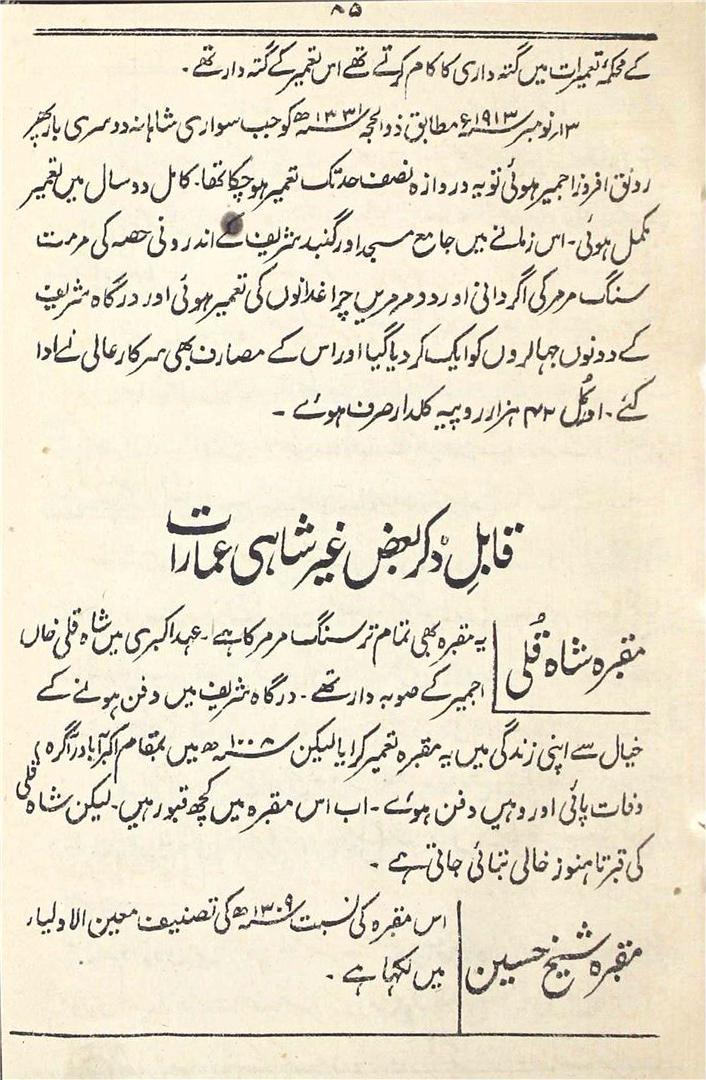 ۸۵
کے محکمۂ تعمیرات میں گتہ داری کا کام کرتے تھے اس تعمیر کے گتہ دار تھے ۔
۱۳؍ نومبر ۱۹۱۳ء مطابق ذوالحجہ ۱۳۳۱ھ کو جب سواری شاہانہ دوسری بار پھر
رونق افروز اجمیر ہوئی تو یہ دروازہ نصف حد تک تعمیر ہو چکا تھا ۔ کامل دو سال میں تعمیر
مکمل ہوئی ۔ اس زمانے میں جامع مسجد اور گنبد شریف کے اندرونی حصہ کی مرمت
سنگ مرمر کی اگردانی اور دو مرمریں چراغدانوں کی تعمیر ہوئی اور درگاہ شریف
کے دونوں جھالروں کو ایک کر دیا گیا اور اس کے مصارف بھی سرکار عالی نے ادا
کئے ۔ اور کُل ۴۲ ہزار روپیہ کلدار صرف ہوئے ۔
قابلِ ذکر بعض غیر شاہی عمارات
مقبرہ شاہ قُلی
یہ مقبرہ بھی تمام تر سنگ مرمر کا ہے ۔ عہد اکبری میں شاہ قلی خاں
اجمیر کے صوبہ دار تھے ۔ درگاہ شریف میں دفن ہونے کے
خیال سے اپنی زندگی میں یہ مقبرہ تعمیر کرایا لیکن ۱۰۰۸ھ میں بمقام اکبر آباد (آگرہ)
وفات پائی اور وہیں دفن ہوئے ۔ اب اس مقبرہ میں کچھ قبور ہیں ۔ لیکن شاہ قلی
کی قبر تا ہنوز خالی بتائی جاتی ہے ۔
مقبرہ شیخ حسین
اس مقبرہ کی نسبت ۱۳۰۹ھ کی تصنیف معین الاولیاء
میں لکھا ہے ۔